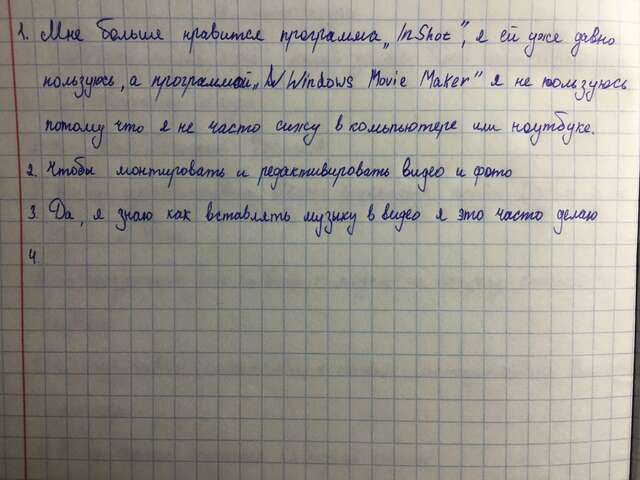 1. Мне больше нравится программа „InShot", я ей уже давно
пользуюсь, а программой „Windows Movie Maker" я не пользуюсь
потому что я не часто сижу в компьютере или ноутбуке.
2. Чтобы монтировать и редактивировать видео и фото
3. Да, я знаю как вставлять музыку в видео я это часто делаю
4.